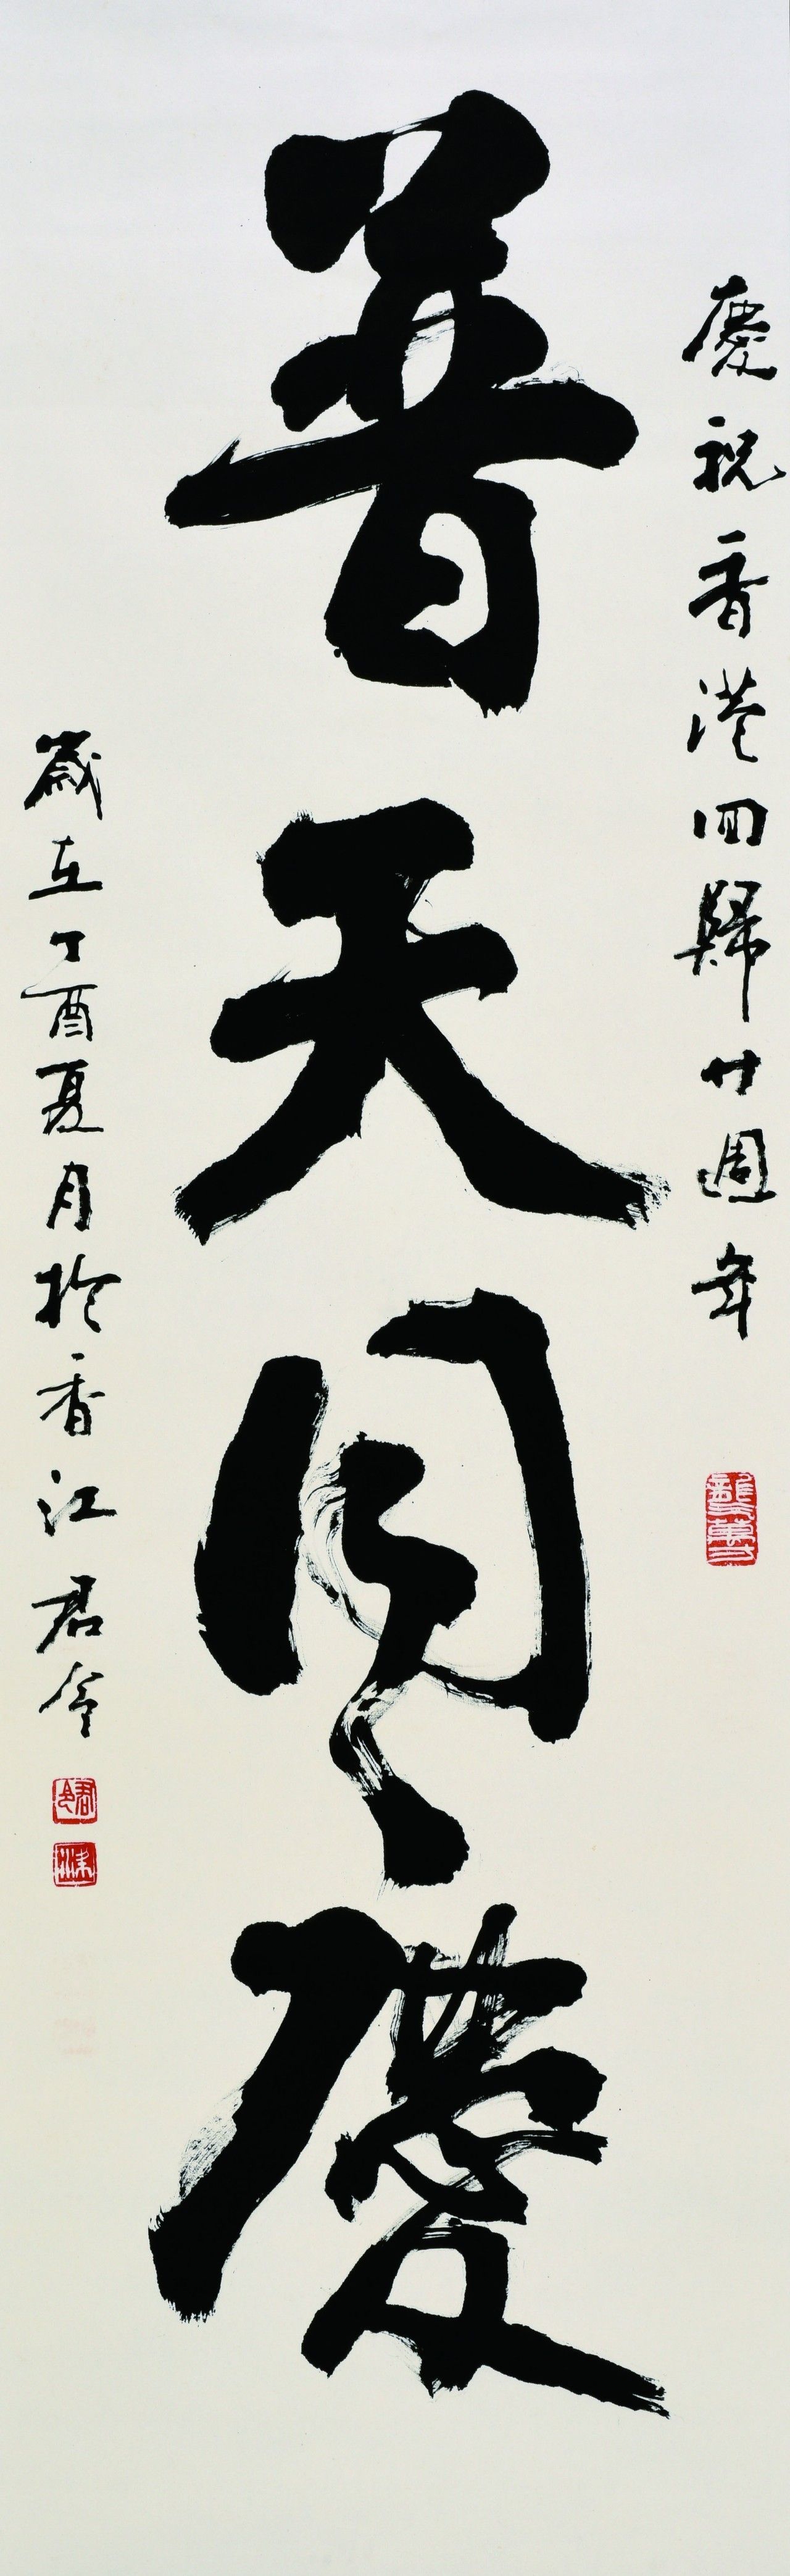 慶祝香港回歸廿週年
普天同慶
歲在丁酉夏月於香江君令